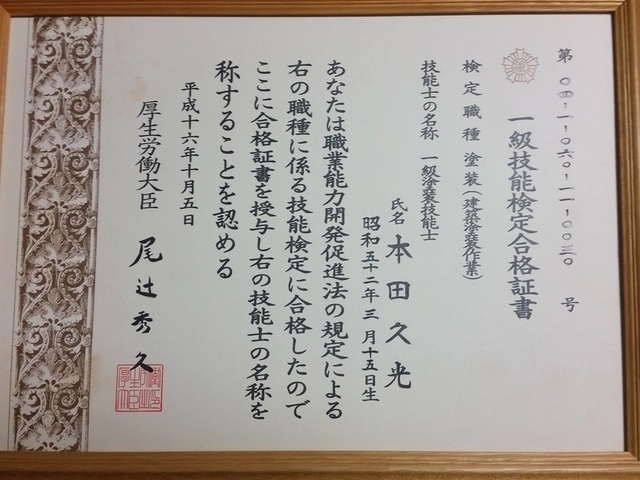 第 04-1-060-11-0030 号
一級技能検定合格証書
検定職種 塗装(建築塗装作業)
技能士の名称 一級塗装技能士
氏名 本田久光
昭和五十二年三月十五日生
あなたは職業能力開発促進法の規定による
右の職種に係る技能検定に合格したので
ここに合格証書を授与し右の技能士の名称を
称することを認める
平成十六年十月五日
厚生労働大臣 尾辻秀久